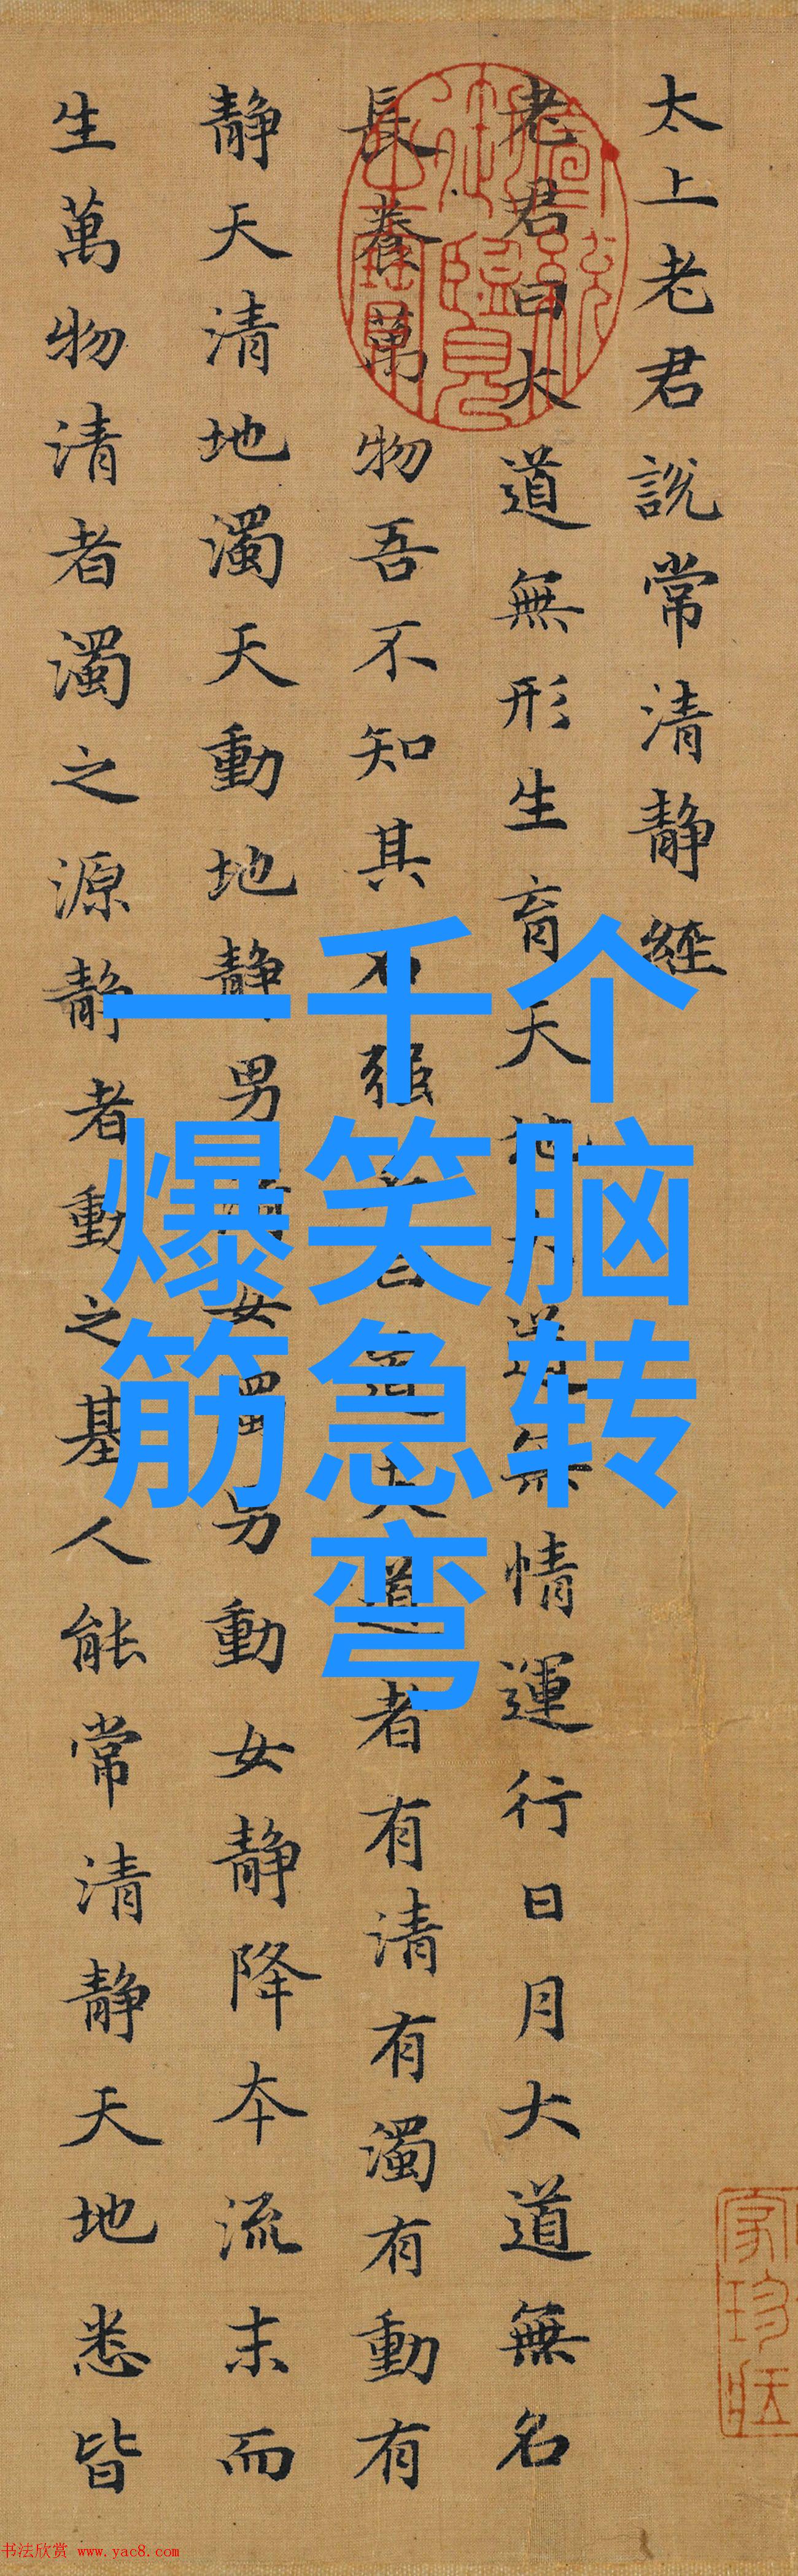 太上老君說常清静經
老君曰大道無形生育天地大道無情運行日月大道無名
長養萬物吾不知其名强名曰道夫道者有清有濁有動有
静天清地濁天動地静男清女濁男動女静降本流末而
生萬物清者濁之源静者動之基人能常清静天地悉皆
宣統御覽之寶
一千个
爆笑脑
筋急转
弯
书法欣赏 www.yac8.com